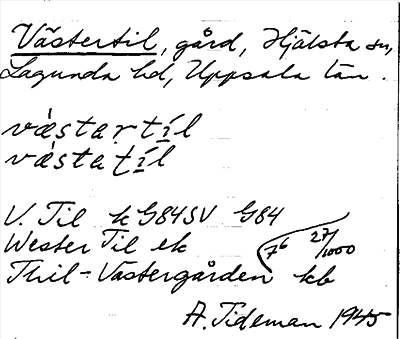 Västertil, gård, Hjälsta sn,
Lagunda hd, Uppsala län.
væ̀startíl
væ̀staṭíl
V. Til k G84SV G84
Wester Til ek (7⁶ 27/1000
Thil-Västergården kb
A. Tideman 1945